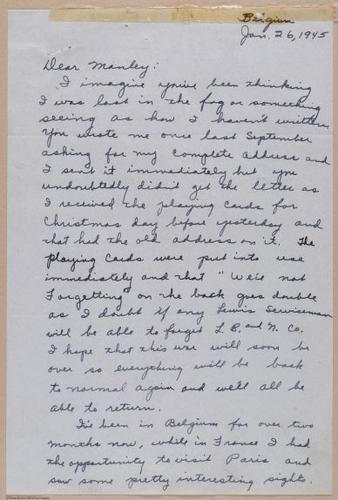 Belgium
Jan. 26, 1945
Dear Manley:
I imagine you've been thinking
I was lost in the fog or something
seeing as how I haven't written
You wrote me once last September
asking for my complete address and
I sent it immediately but you
undoubtedly didn't get the letter as
I received the playing cards for
Christmas day before yesterday and
that had the old address on it. The
playing cards were put into use
immediately and that "We're not
Forgetting" on the back goes double
as I doubt if any Lewis Serviceman
will be able to forget L. B. and N. Co.
I hope that this war will soon be
over so everything will be back
to normal again and we'll all be
able to return.
I've been in Belgium for over two
months now, while in France I had
the opportunity to visit Paris and
saw some pretty interesting sights.